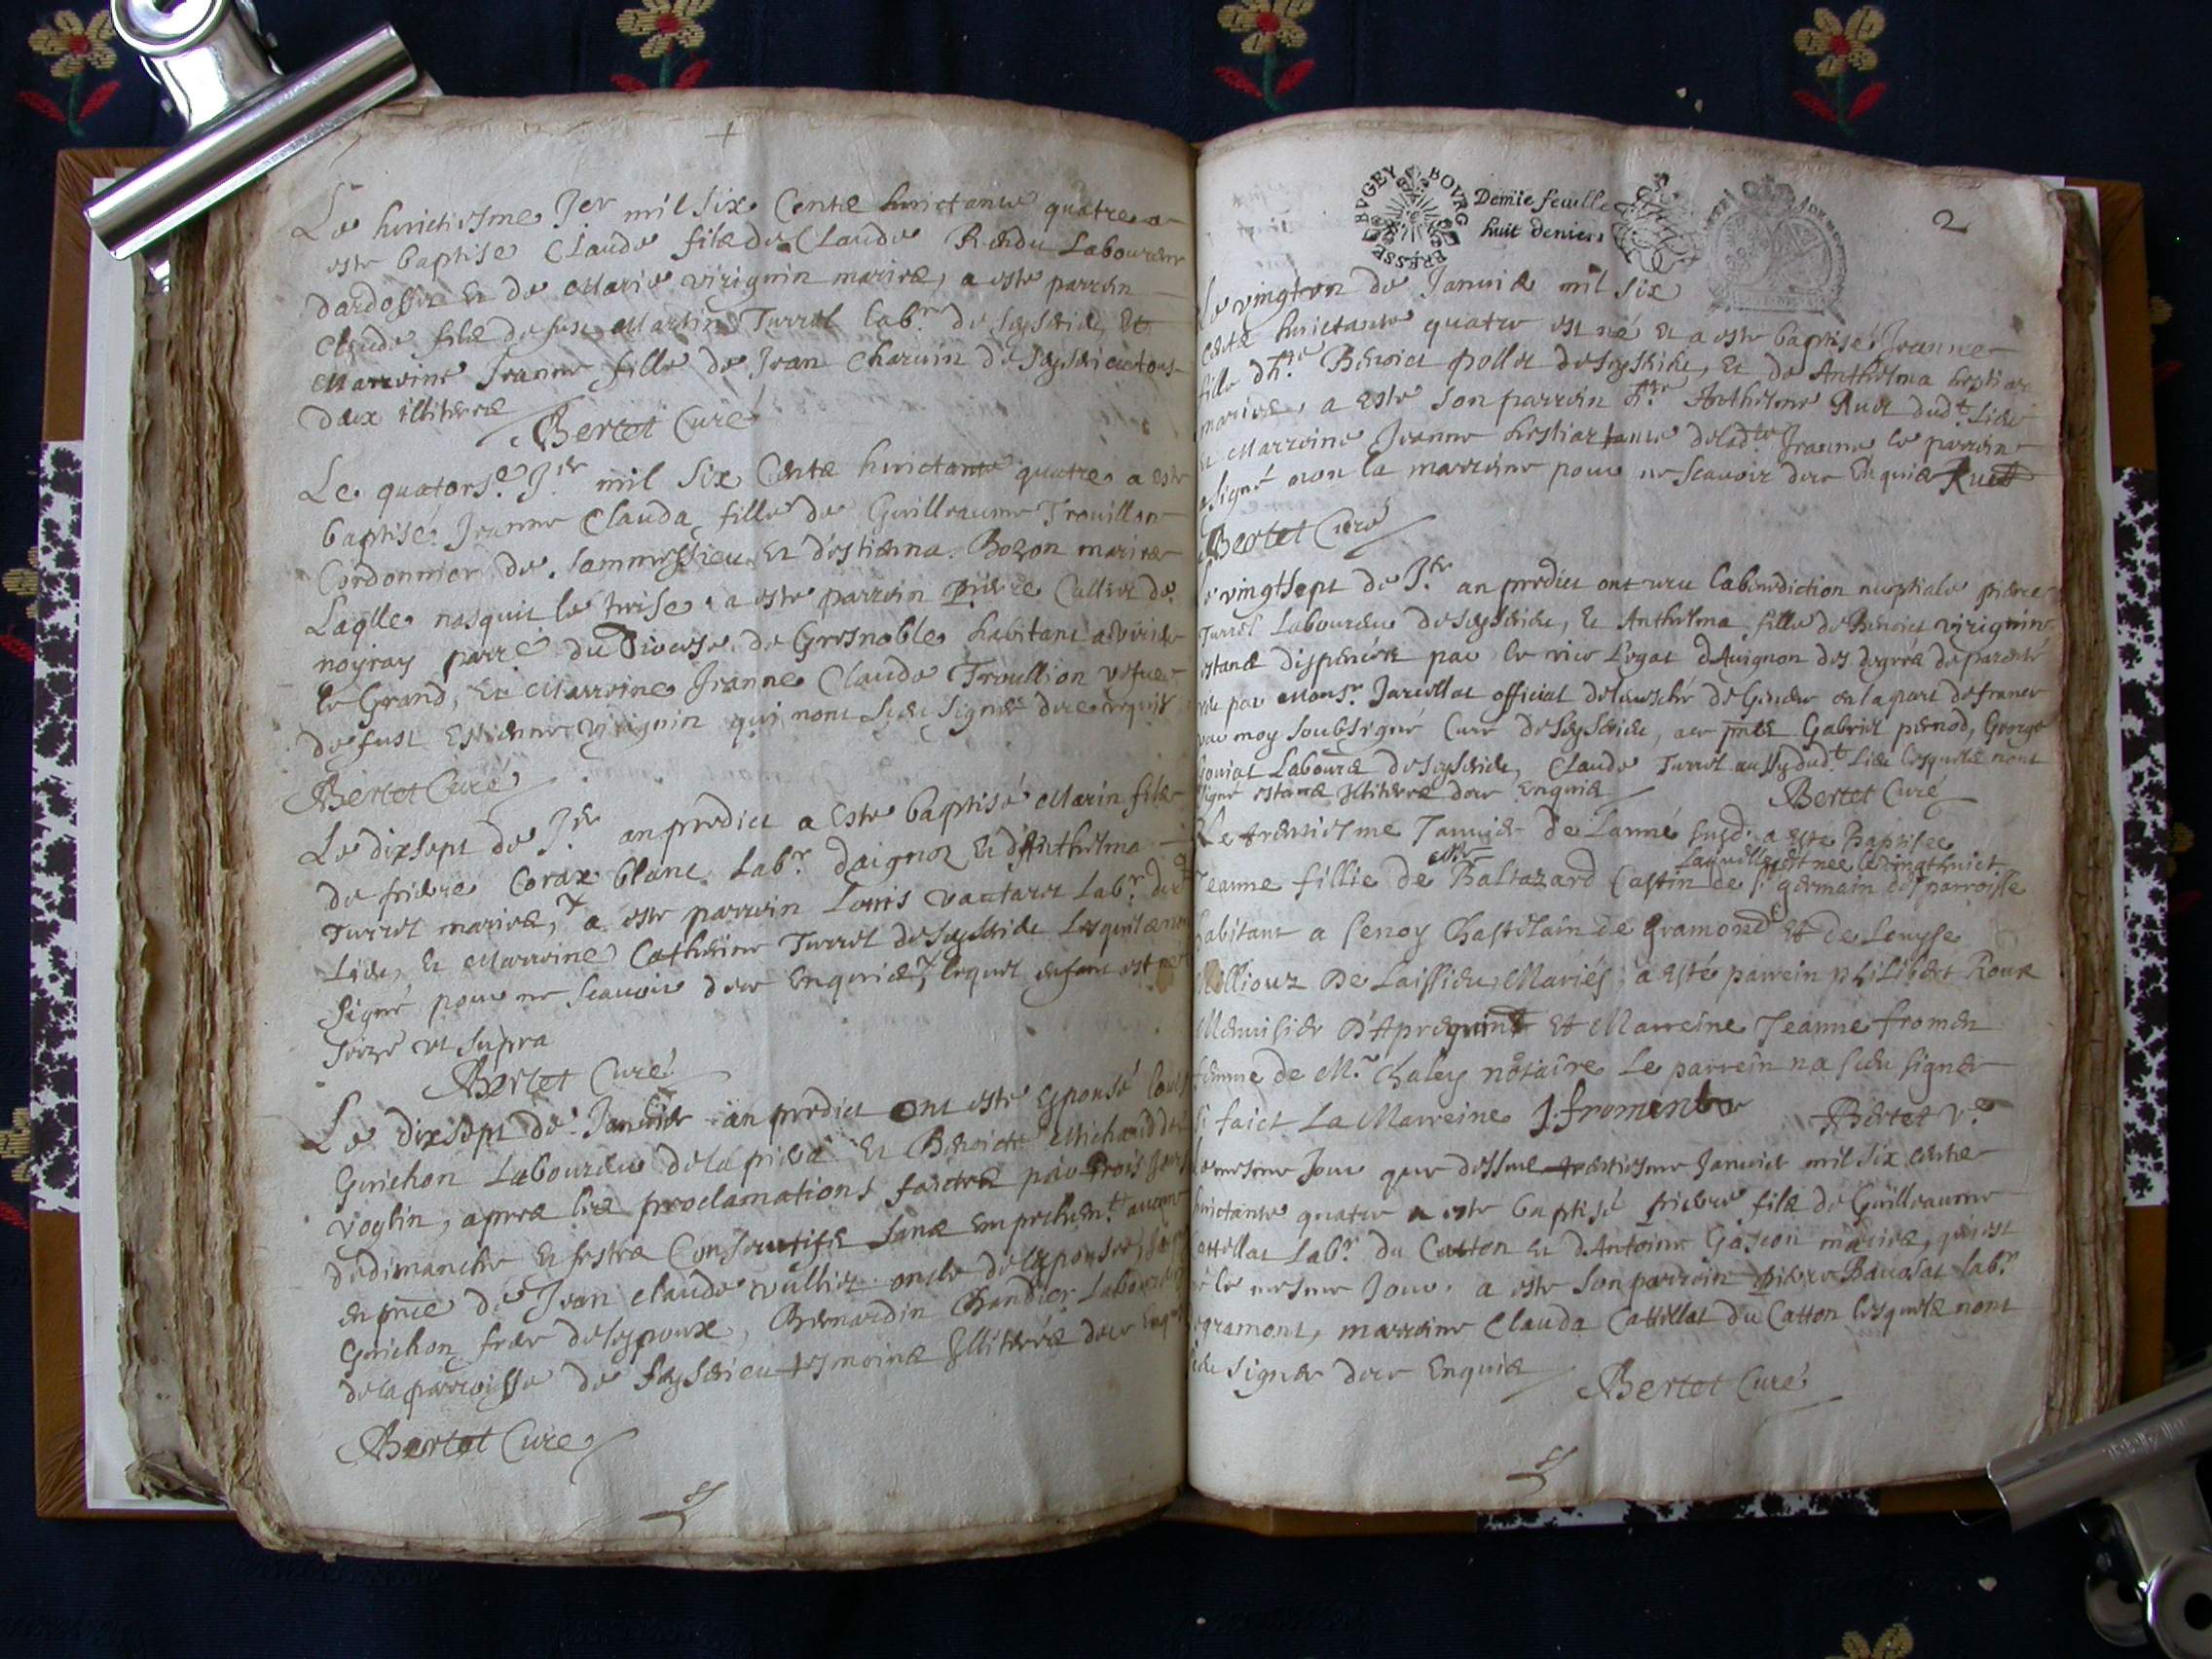 Le huictiesme Jer mil six Centz huictante quatre a
este baptise Claude filz de Claude Rendu Laboureur
dardossin et de Marie viriguin mariez, a este parrein
Claude filz de fust Martin Turrel labr de seyssieu, et
Marreine Jeanne fille de Jean Charuin de seyssieu tous
deux illiterez
Bertet Curé
Le quatorse. Jer mil six Centz huictante quatre a este
baptisé Jeanne Clauda fille de Guilleaume Trouillon
Cordonnier de sammessieu et d'estiena Bozon mariez
Laqlle nasquit le treise a este parrein Pierre Callies de
noyray parre du Diocese de Gresnoble habitant a
le Grand, et Marreine Jeanne Claude Troullion vefue
de fust Estienne viriguin qui nont sceu signé de ce requis
Bertet Curé
Le dixsept de Jer an predict a este baptisé Marin filz
de friere Corax blanc labr daignoz et d'Anthelma
Turrel mariez, a este parrein Louis vautaret labr dud
Lieu, et Marreine Catherine Turrel de seyssieu lesquelz nont
signé pour ne scauoir de ce Enquis lequel enfant est né
seize ut supra
Bertet Curé
Le dixsept de Januier an predict ont este espousé Louis
Guichon Laboureur de la et Benoicte Michaud de
voglin, apres les proclamations faictes par trois jours
de dimanche et festes Consecutifz sans Empechemt aucun
en pnce de Jean claude vullier oncle de lespouse,
Guichon frere de lespoux, Bernardin Chandier Laboureur
de la parroisse de seyssieu tesmoins Illiterés de ce Enquis
Bertet Curé
BVGEY BOVRG BRESSE
Demie feuille
huit deniers
2
Le vington de Januier mil six
Centz huictante quatre est né et a este baptisé Jeanne
fille d'h.re Benoict pollet de seyssieu, et de Anthelma hestier
mariez, a este son parrein h.re Anthelme Ruet dudt Lieu
et Marreine Jeanne hestier tante de ladte Jeanne le parrein
a signé non la marreine pour ne scauoir de ce Enquis Ruett
Bertet Curé
Le vingtsept de Jer an predict ont receu la benediction nuptiale pierre
Turrel Laboureur de seyssieu, et Anthelma fille de Benoict viriguin
estant dispencés par le vice Legat d'Auignon des degréz de parenté
et par Monsr. Jarcellat official de leuesché de Geneue en la part de france
par moy soubsigné Curé de seyssieu, en pnce Gabriel pernod, George
Labourer de seyssieu, Claude Turrel aussy dudt Lieu lesquelz nont
signé estant Illiterez de ce Enquis
Bertet Curé
Le trentiesme Januier de Lanné susd. a este Baptisee
Laquelle est nee le vingthuict.
Jeanne fillie de Baltazard Castin de St germain parroisse
habitant a Cenoy Chastelain de Gramond Et de Louyse
Milliouz De Laissieu Mariés; a esté parrein philibert Roux
Menuisier D'Apregnin Et Marreine Jeanne froment
femme de Mr. Chaley notaire Le parrein na sceu signer
si faict La Marreine J. froment
Bertet Ve
Le mesme Jour que dessus trentiesme Januier mil six centz
huictante quatre a este baptisé friere filz de Guilleaume
Cattellat Labr du Catton et d'Antoine Gascon mariez, qui est
né le mesme Jour. a este son parrein pierre Bauasat labr
de gramont, marreine Clauda Cattellat du Catton lesquelz nont
sceu signer de ce Enquis
Bertet Curé